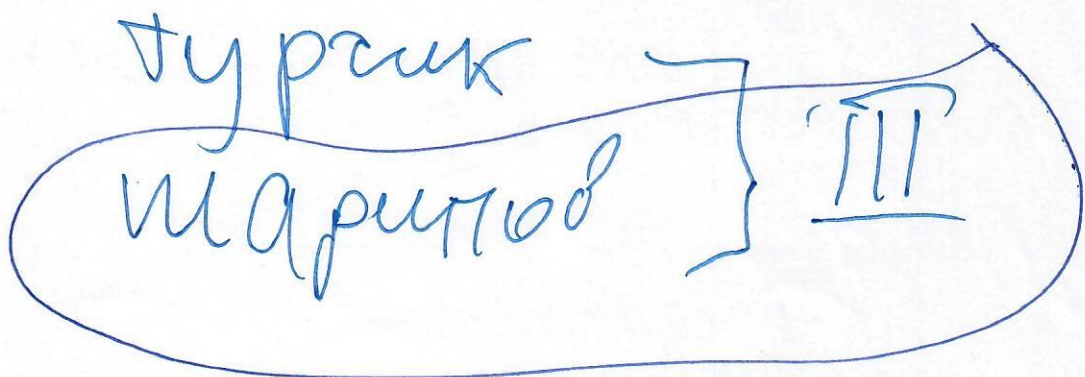 Турчик
Шарипов
III